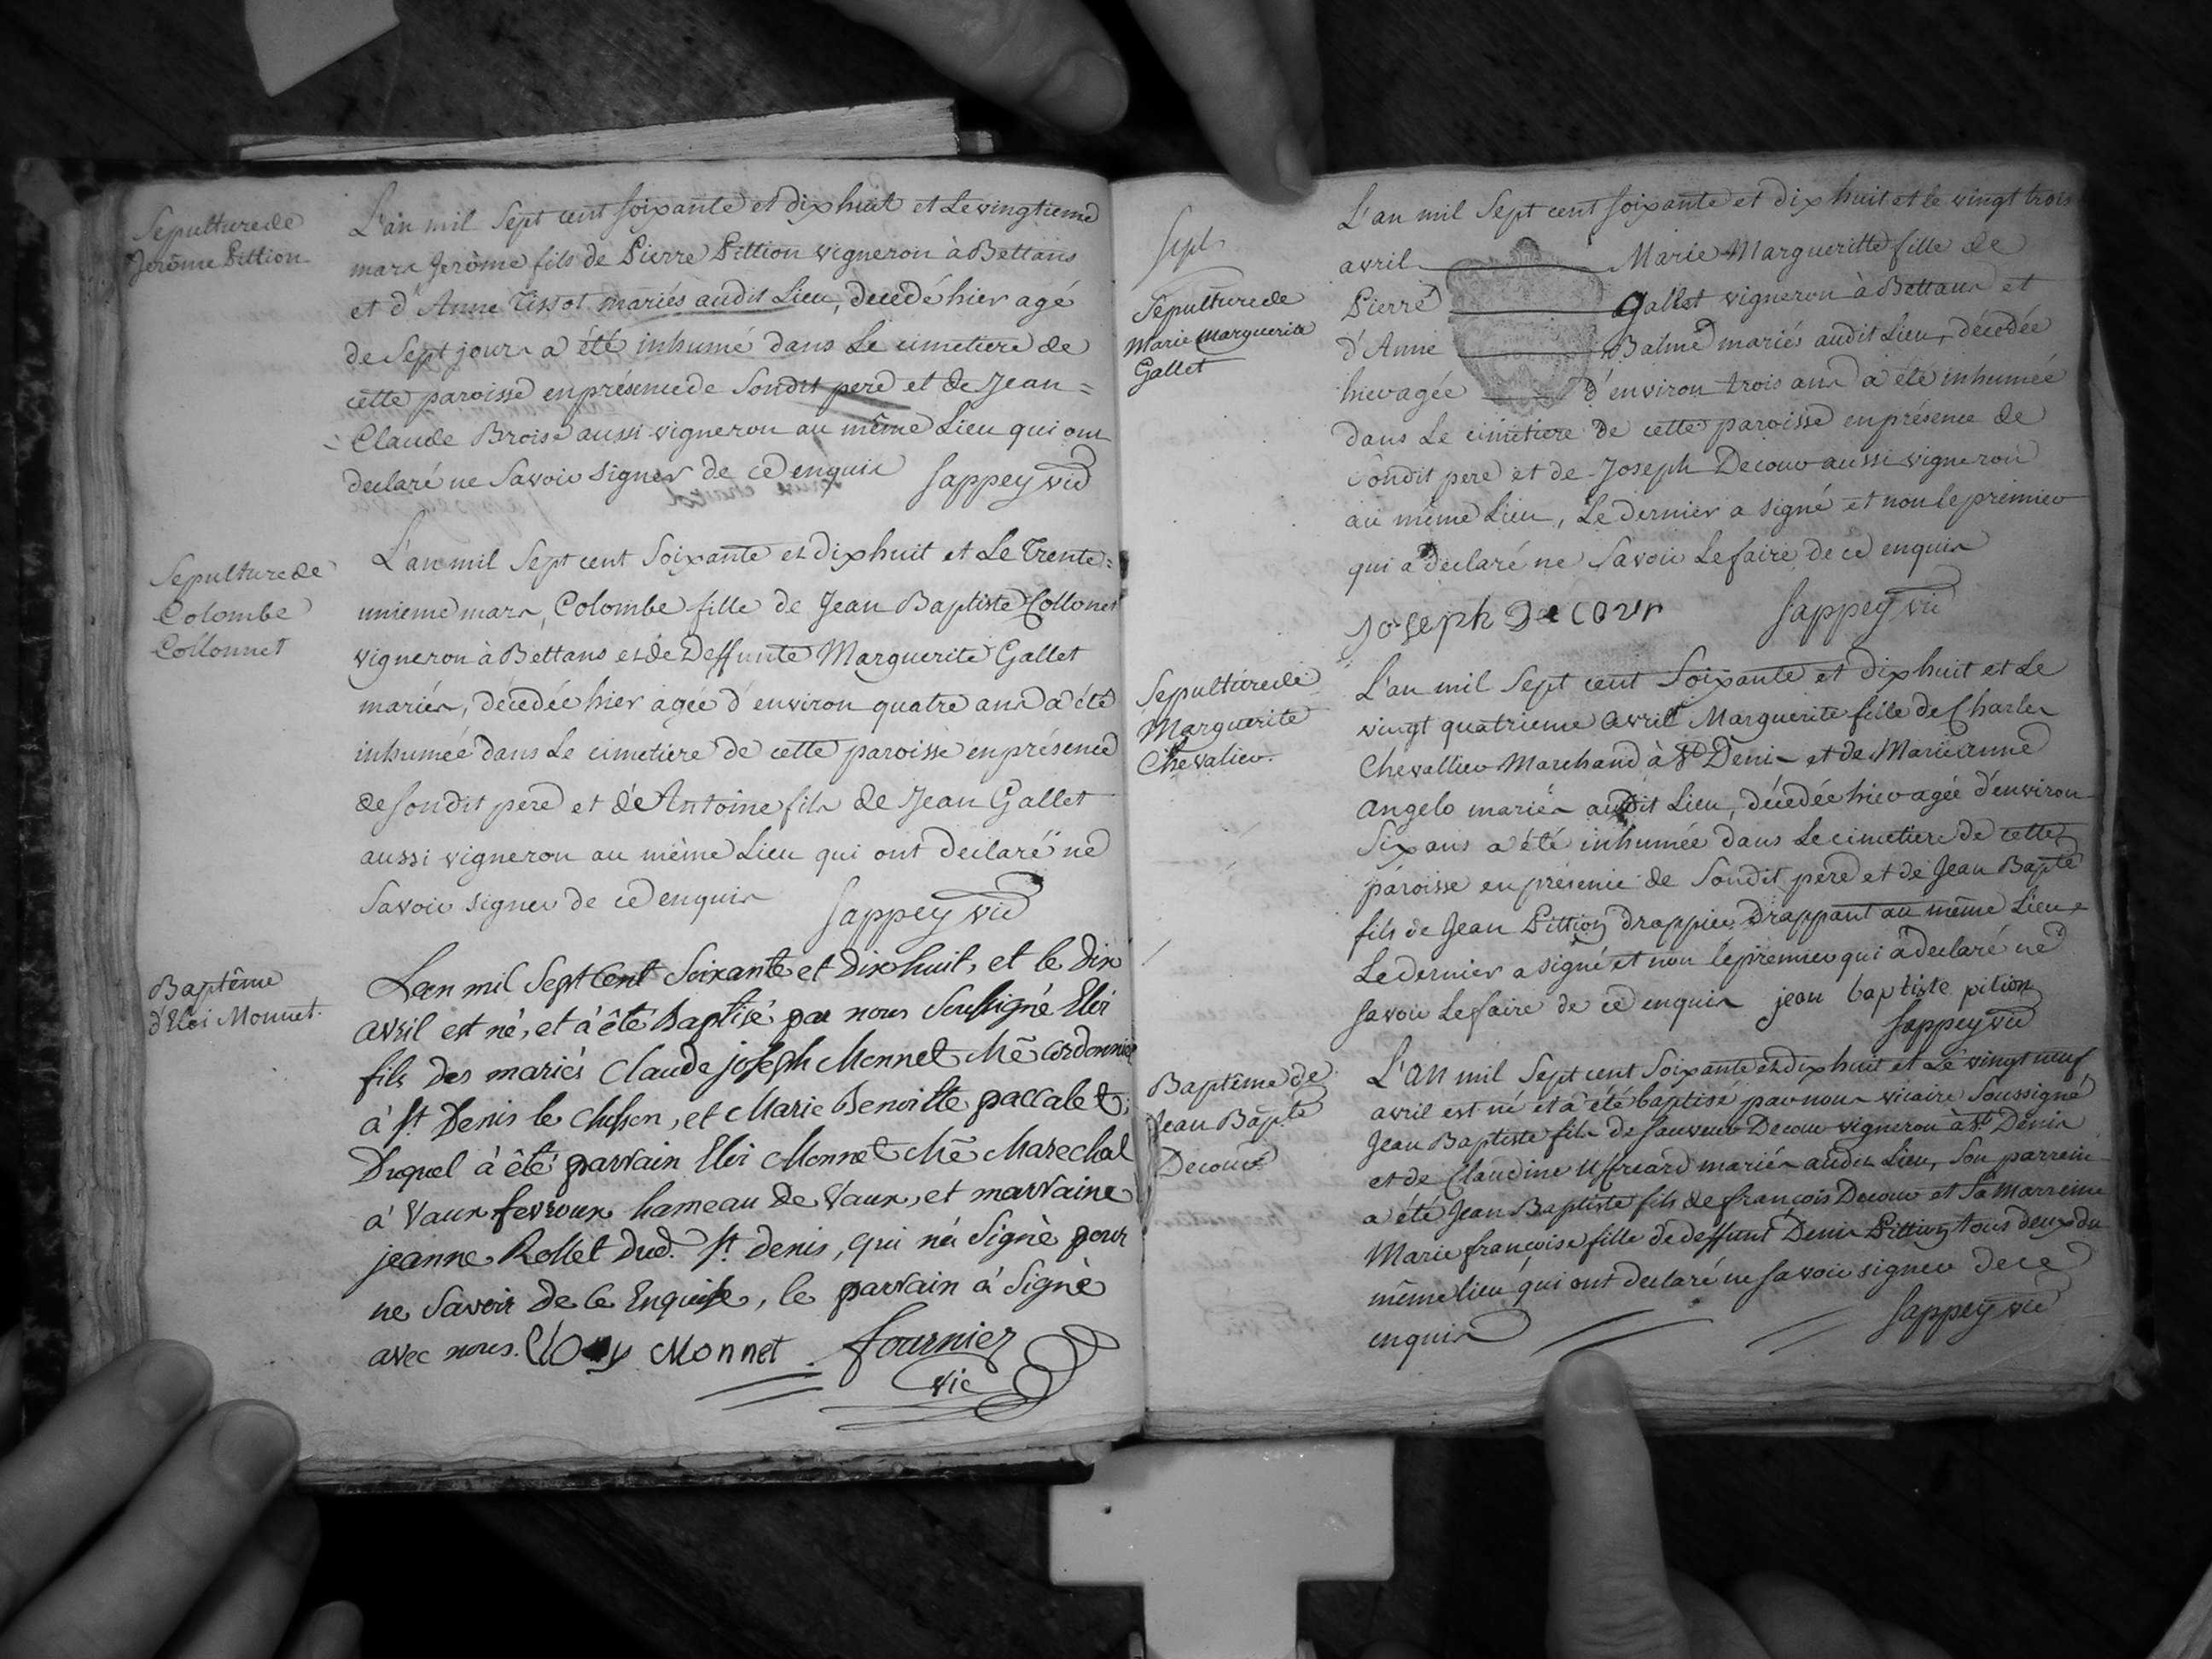 Sepulture de
Jerôme Pittion
L'an mil sept cent soixante et dix huit et le vingtieme
mars Jerôme fils de Pierre Pittion vigneron à Bettans
et d'Anne Tissot mariés audit Lieu, decedé hier agé
de sept jours a été inhumé dans le cimetiere de
cette paroisse en présence de sondit pere et de Jean=
Claude Broise aussi vigneron au même Lieu qui ont
declaré ne savoir signer de ce enquis Sappey vic
Sepulture de
Colombe
Collonnet
L'an mil sept cent soixante et dix huit et le Trente=
unieme mars, Colombe fille de Jean Baptiste Collonet
vigneron à Bettans et de Deffunte Marguerite Gallet
mariés, décedée hier agée d'environ quatre ans a été
inhumée dans le cimetiere de cette paroisse en présence
de sondit pere et de Antoine fils de Jean Gallet
aussi vigneron au même Lieu qui ont declaré ne
savoir signer de ce enquis Sappey vic
Baptême
d'Eloi Monnet.
L'an mil sept cent soixante et dix huit, et le dix
avril est né, et à êté baptisé par nous soussigné Eloi
fils des mariés Claude joseph Monnet Mê Cordonnier
à St Denis le Chosson, et Marie Benoitte paccalet;
Duquel à êté parrain Eloi Monnet Mê Marechal
à Vaux fevroux hameau de Vaux, et marraine
jeanne Rollet dud. St denis, qui n'a signé pour
ne savoir de ce Enquise, le parrain à signé
avec nous. Eloy Monnet fournier
vic
Sept
Sepulture de
Marie Marguerite
Gallet
L'an mil sept cent soixante et dix huit et le vingt trois
avril Marie Margueritte fille de
Pierre Gallet vigneron à Bettans et
d'Anne Balme mariés audit Lieu, décedée
hier agée d'environ trois ans a été inhumée
dans le cimetiere de cette paroisse en présence de
sondit pere et de Joseph Decour aussi vigneron
au même Lieu, le dernier a signé et non le premier
qui a declaré ne savoir le faire de ce enquis
Joseph De cour Sappey vic
Sepulture de
Marguerite
Chevalier.
L'an mil sept cent soixante et dix huit et le
vingt quatrieme avril Marguerite fille de Charles
Chevallier Marchand à St Denis et de Marieanne
Angelo mariés audit Lieu, décedée hier agée d'environ
six ans a été inhumée dans le cimetiere de cette
paroisse en présence de sondit pere et de Jean Bapte
fils de Jean Pittion drappier Drappant au même Lieu
le dernier a signé et non le premier qui a declaré ne
savoir le faire de ce enquis jean baptiste pition
Sappey vic
Baptême de
Jean Bapte
Decour
L'an mil sept cent soixante et dix huit et le vingt neuf
avril est né et a été baptisé par nous vicaire soussigné
Jean Baptiste fils de sauveur Decour vigneron à St Denis
et de Claudine mariés audit Lieu, son parrein
a été Jean Baptiste fils de françois Decour et sa marreine
Marie françoise fille de deffunt Denis Pittion tous deux du
même lieu qui ont declaré ne savoir signer de ce
enquis Sappey vic